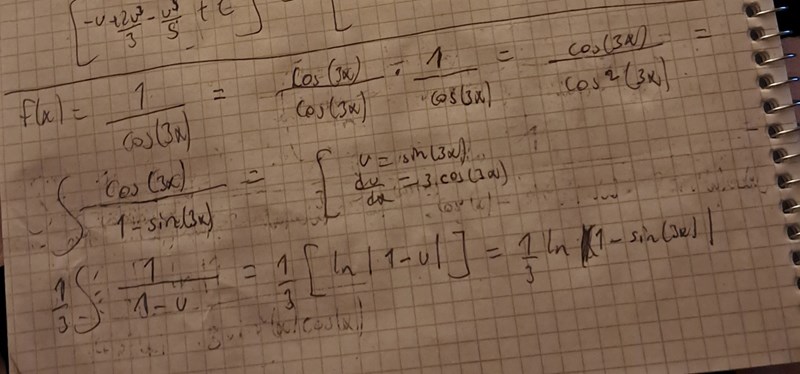 [-u + 2u³/3 - u⁵/5 + C] - [
f(x) = 1/cos(3x) = cos(3x)/cos(3x) · 1/cos(3x) = cos(3x)/cos²(3x) =
∫ cos(3x)/1-sin(3x) = [ u = sin(3x)
du/dx = 3.cos(3x)
1/3 ∫ 1/1-u = 1/3 [ln|1-u|] = 1/3 ln |1-sin(3x)|